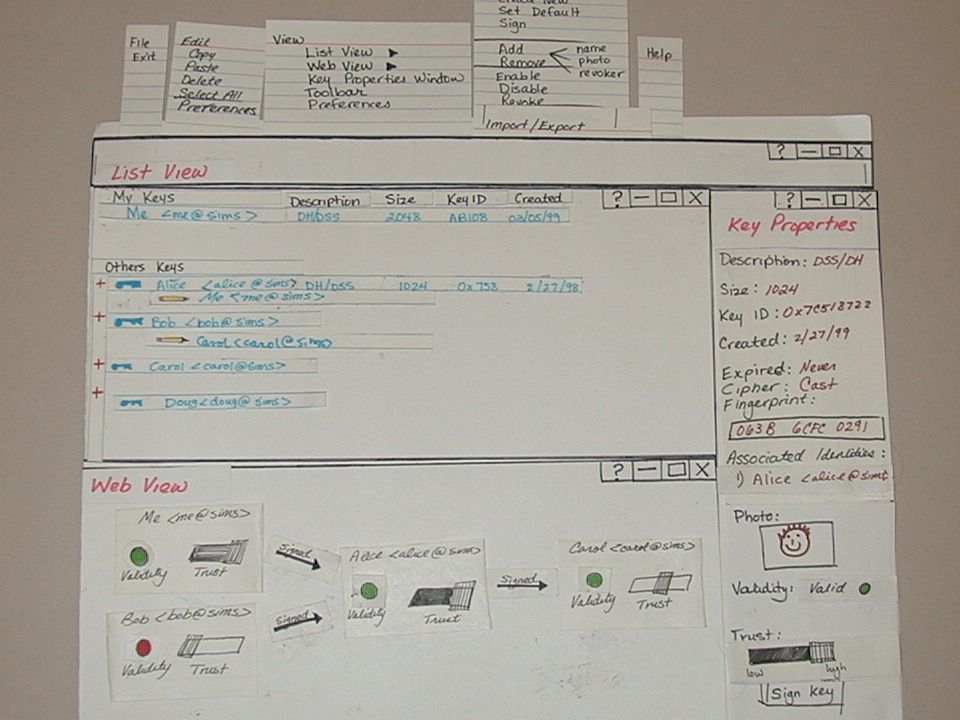 File
Exit
Edit
Copy
Paste
Delete
Select All
Preferences
View
List View
Web View
Key Properties Window
Toolbar
Preferences
Set Default
Sign
Add
Remove
name
photo
revoker
Enable
Disable
Revoke
Import/Export
Help
? — X
List View
My Keys Description Size Key ID Created
? — X
Me <me@sims> DH/DSS 2048 AB108 03/05/99
Others Keys
+ Alice <alice@sims> DH/DSS 1024 0x758 2/27/98
Me <me@sims>
+ Bob <bob@sims>
Carol <carol@sims>
+ Carol <carol@sims>
+ Doug <doug@sims>
? — X
Key Properties
Description: DSS/DH
Size: 1024
Key ID: 0x7C518722
Created: 2/27/99
Expired: Never
Cipher: Cast
Fingerprint:
063B 6CFC 0291
Associated Identities:
1) Alice <alice@sims
Photo:
Validity: Valid
Trust:
low high
Sign Key
? — X
Web View
Me <me@sims>
Validity Trust
Signed
Alice <alice@sims>
Validity Trust
Signed
Carol <carol@sims>
Validity Trust
Bob <bob@sims>
Validity Trust
Signed